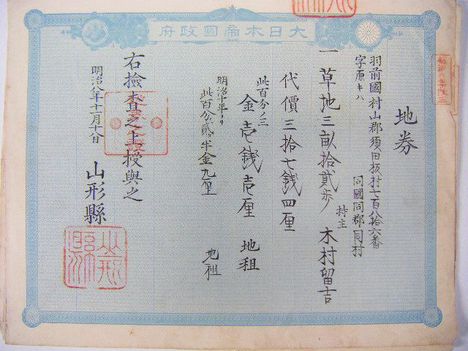 大日本帝國政府
地券
羽前國村山郡須田板村七百八拾六番
字唐キハ
同國同郡同村
一草地三畝拾貳歩
持主
木村留吉
代價三拾七錢四厘
此百分ノ三
金壱錢壱厘 地租
明治十年ヨリ
此百分貳半金九厘 地租
右檢査之上授與之
明治八年十一月十八日
山形縣